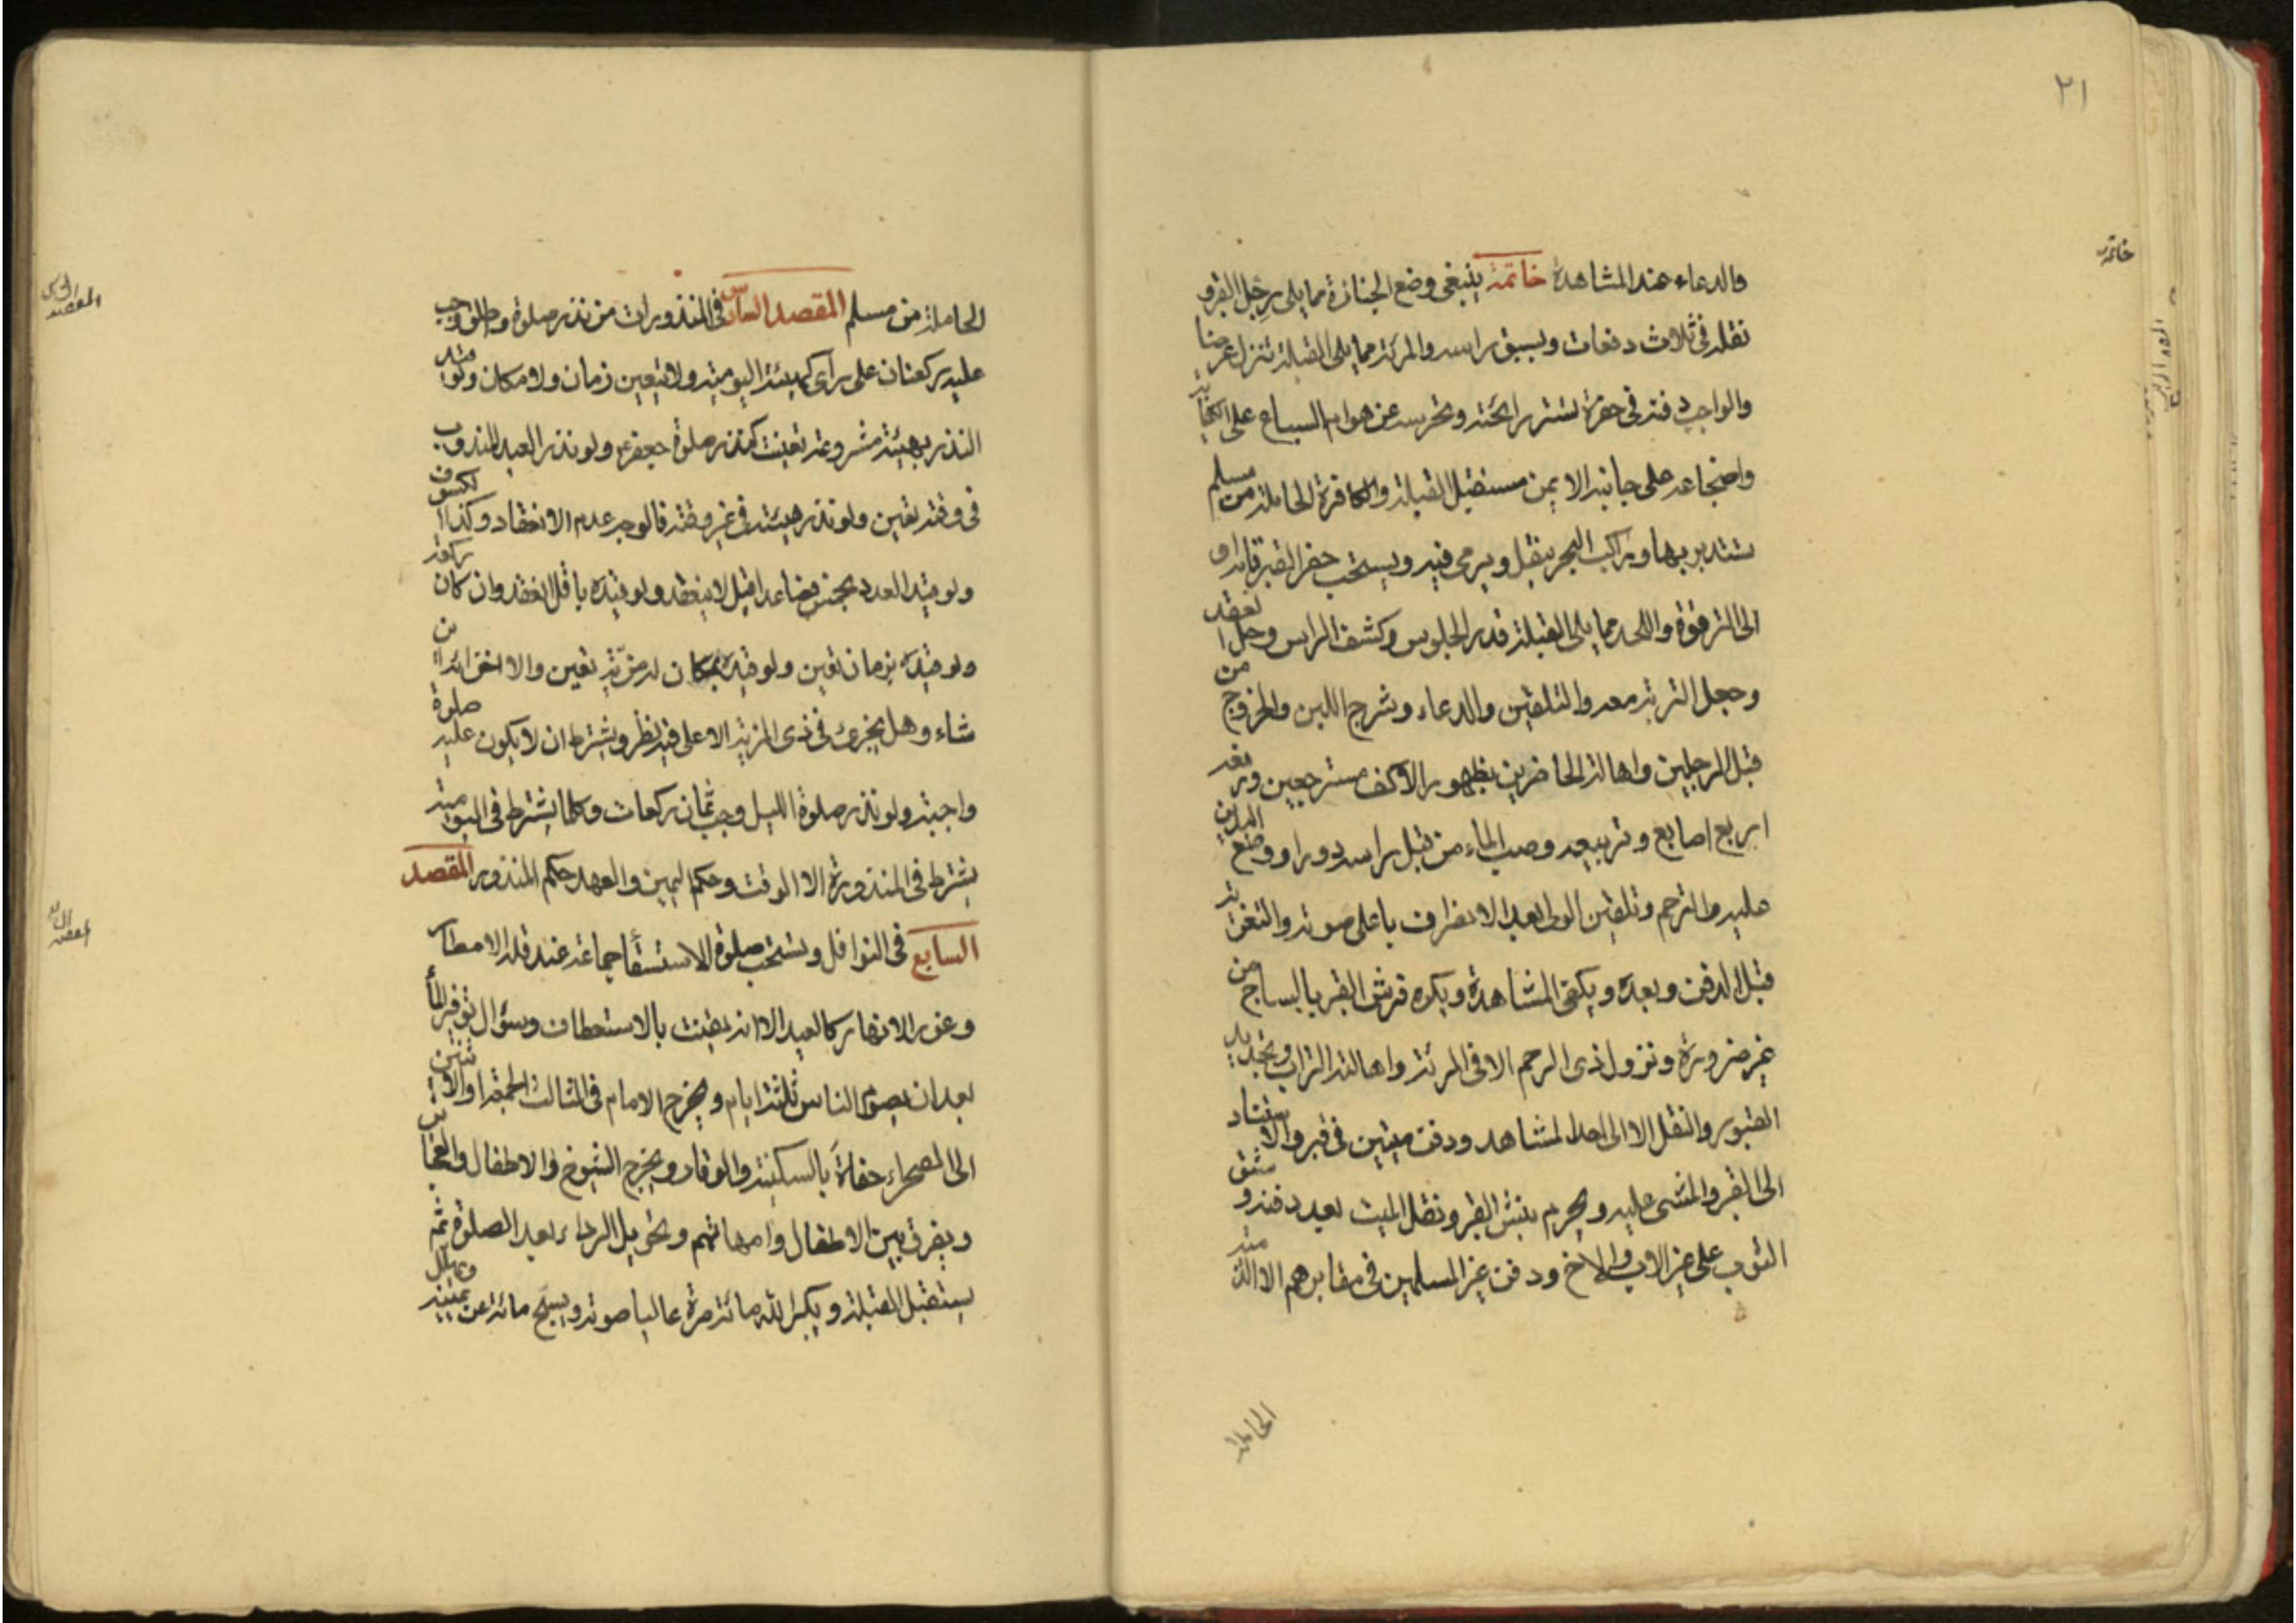 ٢١
خاتمة
والدعاء عند المشاهدة خاتمة ينبغى وضع الجنازة مما يلى رجل القبر و
نقله فى ثلاث دفعات ويسبق براسه والمرئة مما يلى القبلة تنزل عرضا
والواجب دفنه فى حفرة تستر رائحته وتحرسه عن هوام السباع على الكفاية
واضجاعه على جانبه الايمن مستقبل القبلة والكافرة الحاملة من مسلم
تستدبر بها وراكب البحر يثقل ويرمى فيه ويستحب حفر القبر قامة او
الى الترقوة واللحد مما يلى القبلة قدر الجلوس وكشف الراس وحل العقد
وجعل التربة معه والتلقين والدعاء وشرج اللبن والخروج من
قبل الرجلين واهالة الحاضرين بظهور الاكف مسترجعين ورفعه
اربع اصابع وتربيعه وصب الماء من قبل راسه دورا ووضع اليدين
عليه والترحم وتلقين الولى بعد الانصراف باعلى صوته والتعزية
قبل الدفن وبعده ويكفى المشاهدة ويكره فرش القبر بالساج من
غير ضرورة ونزول ذى الرحم الا فى المرئة واهالته التراب وتجديد
القبور والنقل الا الى احد المشاهد ودفن ميتين فى قبر والاستناد
الى القبر والمشى عليه ويحرم نبش القبر ونقل الميت بعد دفنه وشق
الثوب على غير الاب والاخ ودفن غير المسلمين فى مقابرهم الا الذمية
الحاملة
الحاملة من مسلم المقصد السادس فى المنذورات من نذر صلوة واطلق وجب
عليه ركعتان على راى كهيئة اليومية ولا يتعين زمان ولا مكان ولو قيد
النذر بهيئة مشروعة تعينت كنذر صلوة جعفر ع ولو نذر العيد المندوب
فى وقته تعين ولو نذر هيئته فى غير وقته فالوجه عدم الانعقاد وكذا الكسوف
ولو قيد العدد بخمس فصاعدا قيل لا ينعقد ولو قيده باقل انعقد وان كان ركعة
ولو قيده بزمان تعين ولو قيده بمكان له مزية تعين والا اجزا اين
شاء وهل يجزئ فى ذى المزية الاعلى فيه نظر ويشترط ان لا يكون عليه صلوة
واجبة ولو نذر صلوة الليل وجب ثمان ركعات وكلما يشترط فى اليومية
يشترط فى المنذورة الا الوقت وحكم اليمين والعهد حكم المنذور المقصد
السابع فى النوافل ويستحب صلوة الاستسقأ جماعة عند قلة الامطار
وغور الانهار كالعيد الا انه يقنت بالاستعطاف وسؤال توفير المأ
بعد ان يصوم الناس ثلثة ايام ويخرج الامام فى الثالث الجمعة او الاثنين
الى الصحراء حفاة بالسكينة والوقار ويخرج الشيوخ والاطفال والعجايز
ويفرق بين الاطفال وامهاتهم وتحويل الرداء بعد الصلوة ثم
يستقبل القبلة ويكبر الله مائة مرة عاليا صوته ويسبح مائة عن يمينه ويهلل